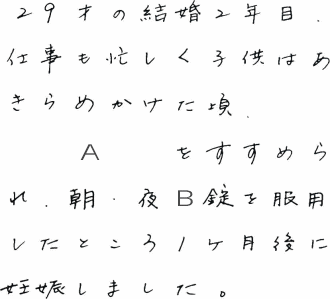 29才の結婚2年目.
仕事も忙しく子供はあ
きらめかけた頃.
A をすすめら
れ.朝・夜B錠を服用
したところ1ヶ月後に
妊娠しました。